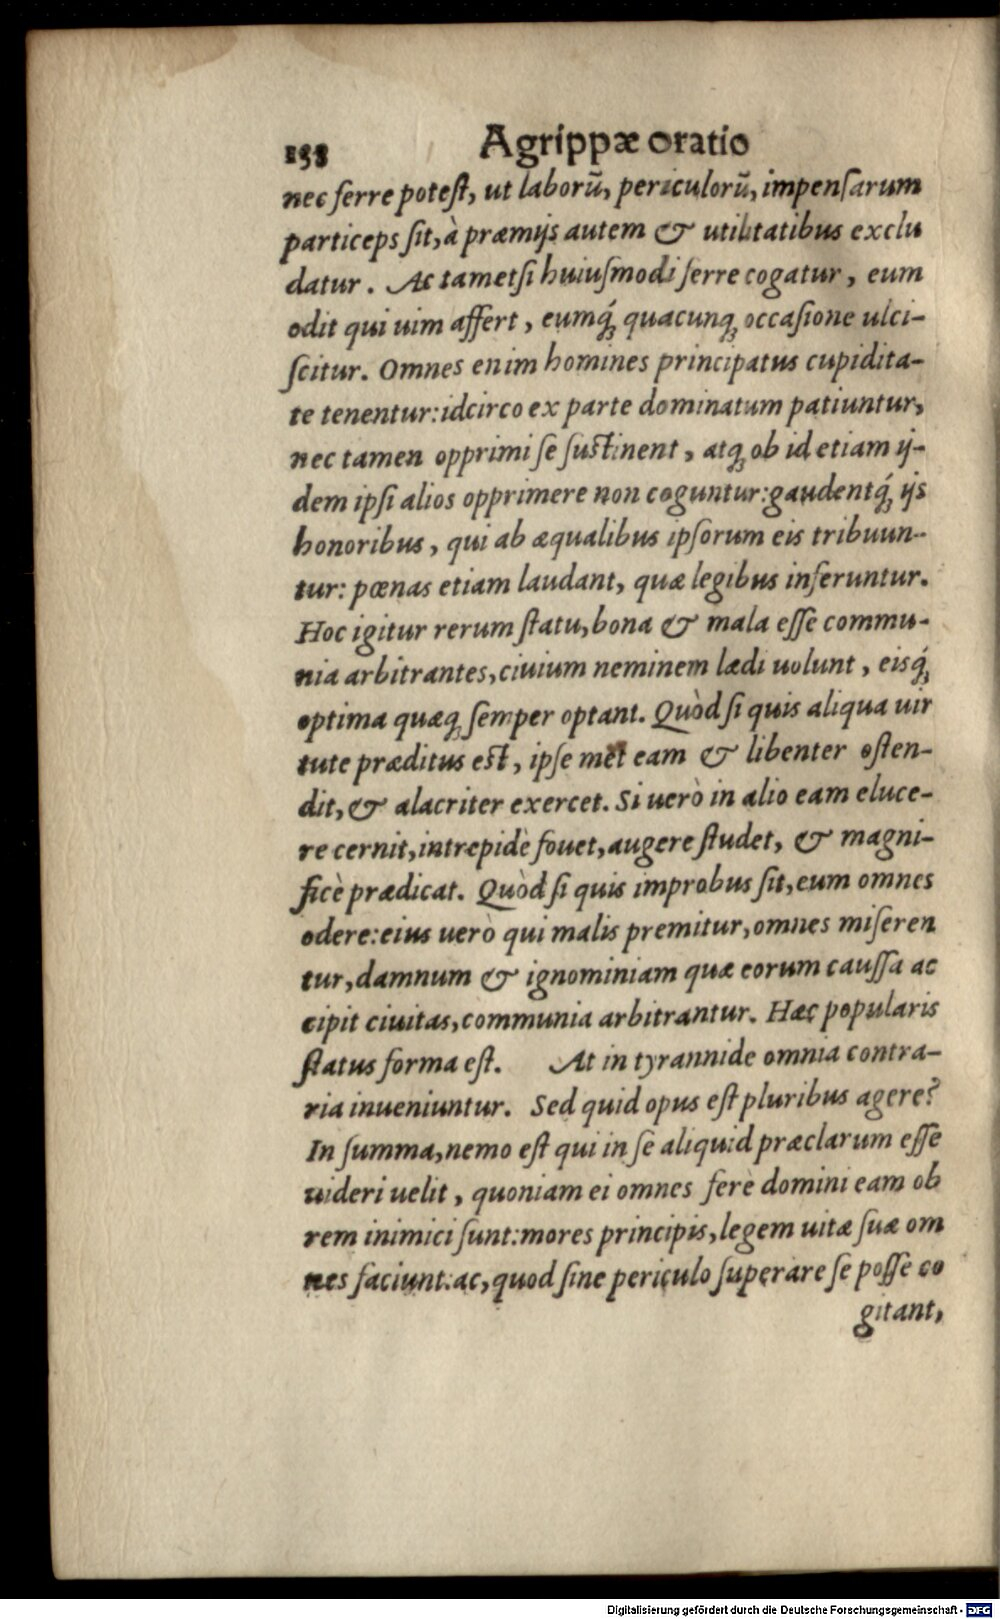 138 Agrippæ oratio
nec ferre poteſt, ut laborũ, periculorũ, impenſarum
particeps ſit, à præmijs autem & utilitatibus exclu
datur. Ac tametſi huiuſmodi ferre cogatur, eum
odit qui uim affert, eumq́; quacunq; occaſione ulci-
ſcitur. Omnes enim homines principatus cupidita-
te tenentur: idcirco ex parte dominatum patiuntur,
nec tamen opprimi ſe ſuſtinent, atq; ob id etiam ij-
dem ipſi alios opprimere non coguntur: gaudentq́; ijs
honoribus, qui ab æqualibus ipſorum eis tribuun-
tur: pœnas etiam laudant, quæ legibus inferuntur.
Hoc igitur rerum ſtatu, bona & mala eſſe commu-
nia arbitrantes, ciuium neminem lædi uolunt, eisq́;
optima quæq; ſemper optant. Quòd ſi quis aliqua uir
tute præditus eſt, ipſe met eam & libenter oſten-
dit, & alacriter exercet. Si uerò in alio eam eluce-
re cernit, intrepidè fouet, augere ſtudet, & magni-
ficè prædicat. Quòd ſi quis improbus ſit, eum omnes
odere: eius uerò qui malis premitur, omnes miſeren
tur, damnum & ignominiam quæ eorum cauſſa ac
cipit ciuitas, communia arbitrantur. Hæc popularis
ſtatus forma eſt. At in tyrannide omnia contra-
ria inueniuntur. Sed quid opus eſt pluribus agere?
In ſumma, nemo eſt qui in ſe aliquid præclarum eſſe
uideri uelit, quoniam ei omnes ferè domini eam ob
rem inimici ſunt: mores principis, legem uitæ ſuæ om
nes faciunt: ac, quod ſine periculo ſuperare ſe poſſe co
gitant,
Digitalisierung gefördert durch die Deutsche Forschungsgemeinschaft - DFG